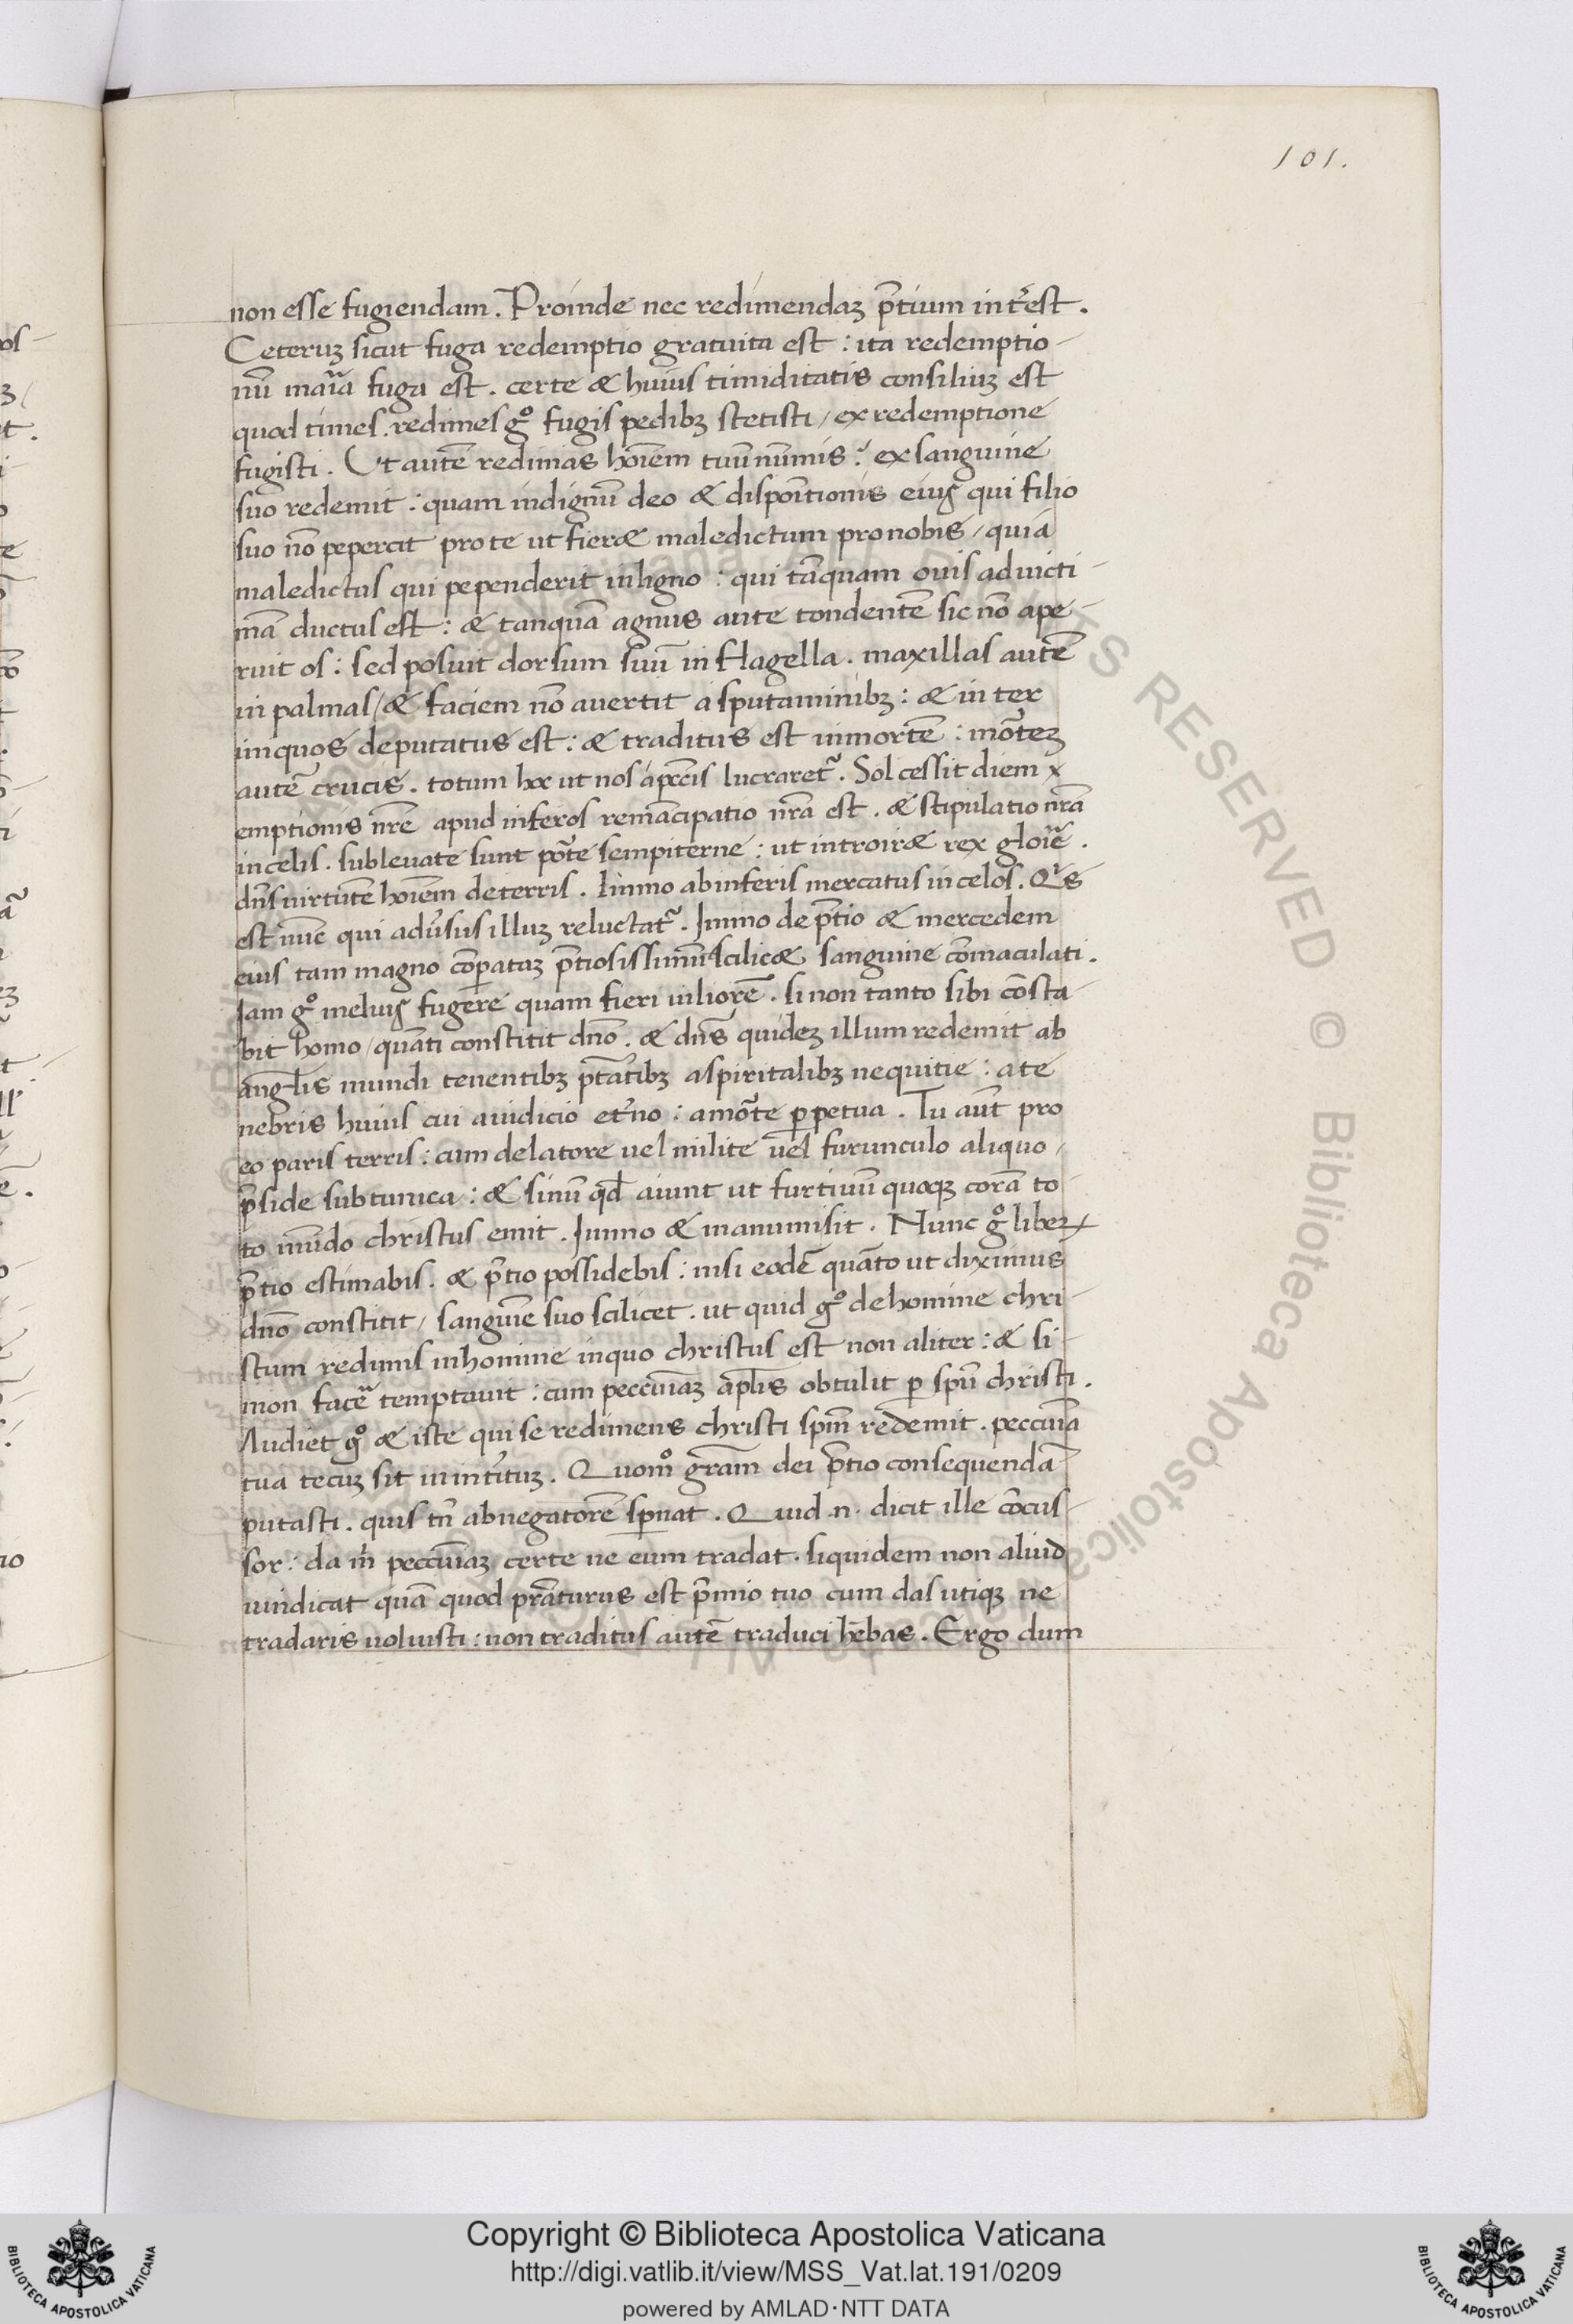 101.
non esse fugiendam. Proinde nec redimendaꝫ p̄tium int̄est.
Ceteruꝫ sicut fuga redemptio gratuita est: ita redemptio-
nū maīa fuga est. certe & huius timiditatis consiliuꝫ est
quod times. redimes gͦ fugis pedibꝫ stetisti / ex redemptione
fugisti. Ut autē redimas hoīem tuū nūmis? ex sanguine
suo redemit: quam indignū deo & dispoītionis eiuꝰ qui filio
suo nō pepercit pro te ut fier& maledictum pro nobis / quia
maledictus qui pependerit in ligno: qui tāquam ouis ad uicti-
mā ductus est: & tanquā agnus ante tondentē sic nō ape-
ruit os: sed posuit dorsum suū in flagella. maxillas autē
in palmas / & faciem nō auertit a sputaminibꝫ: & in ter
iniquos deputatus est: & traditus est in mortē: mōteꝫ
autē crucis. totum hoc ut nos a p̄ccīs lucraret᷑. Sol cessit diem
emptionis nr̄e apud inferos remācipatio nr̄a est. & stipulatio nr̄a
in celis. subleuate sunt pōte sempiterne: ut introir& rex gloīe.
dn̄s uirtutē hoīem de terris. Immo ab inferis mercatus in celos. Qⁱs
est nūc qui adūsus illuꝫ reluctat᷑. Immo de p̄tio & mercedem
eius tam magno cōparataꝫ p̄tiosissimū scilic& sanguine cōmaculati.
Iam gͦ meliuꝰ fugere quam fieri uiliorē. si non tanto sibi cōsta-
bit homo / quāti constitit dn̄o. & dn̄s quideꝫ illum redemit ab
anglis mundi tenentibꝫ p̄tatibꝫ a spiritalibꝫ nequitie: a te
nebris huius eui a iudicio et̄no: a mōte ꝑpetua. Tu aūt pro
eo paris terris: cum delatore uel milite uel furunculo aliquo /
p̄side sub tunica: & sinū qd̄ aiunt ut furtiuū quoqꝫ corā to-
to mūdo christus emit. Immo & manumisit. Nunc gͦ liberꝫ
p̄tio estimabis. & p̄tio possidebis: nisi eodē quāto ut diximus
dn̄o constitit / sanguīe suo scilicet. ut quid gͦ de homine chri-
stum redimis in homine in quo christus est non aliter: & si-
mon facē temptauit: cum peccuniaꝫ apl̄is obtulit ꝑ spū christi.
Audiet gͦ & iste qui se redimens christi spm̄ redemit. peccuīa
tua tecuꝫ sit in int̄ituꝫ. Quomͦ gr̄am dei p̄tio consequendā
putasti. quis tn̄ abnegatorē spernat. Quid .n. dicit ille cōcus-
sor: da m̄ peccuīaꝫ certe ne eum tradat. siquidem non aliud
uindicat quā quod pr̄aturus est p̄mio tuo cum das utiqꝫ ne
tradaris uoluisti: non traditus autē traduci hēbas. Ergo dum
Copyright © Biblioteca Apostolica Vaticana
http://digi.vatlib.it/view/MSS_Vat.lat.191/0209
powered by AMLAD·NTT DATA